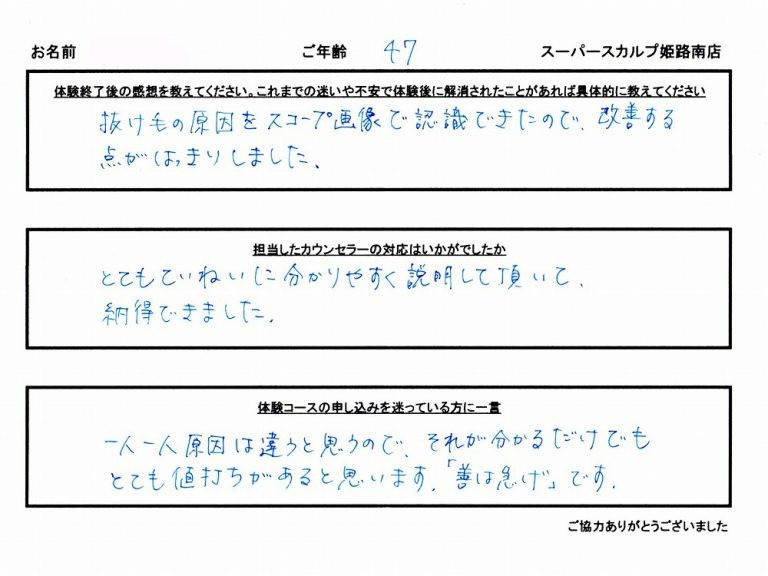 お名前 ご年齢 47 スーパースカルプ姫路南店
体験終了後の感想を教えてください。これまでの迷いや不安で体験後に解消されたことがあれば具体的に教えてください
抜け毛の原因をスコープ画像で認識できたので、改善する
点がはっきりしました。
担当したカウンセラーの対応はいかがでしたか
とてもていねいに分かりやすく説明して頂いて、
納得できました。
体験コースの申し込みを迷っている方に一言
一人一人原因は違うと思うので、それが分かるだけでも
とても値打ちがあると思います。「善は急げ」です。
ご協力ありがとうございました